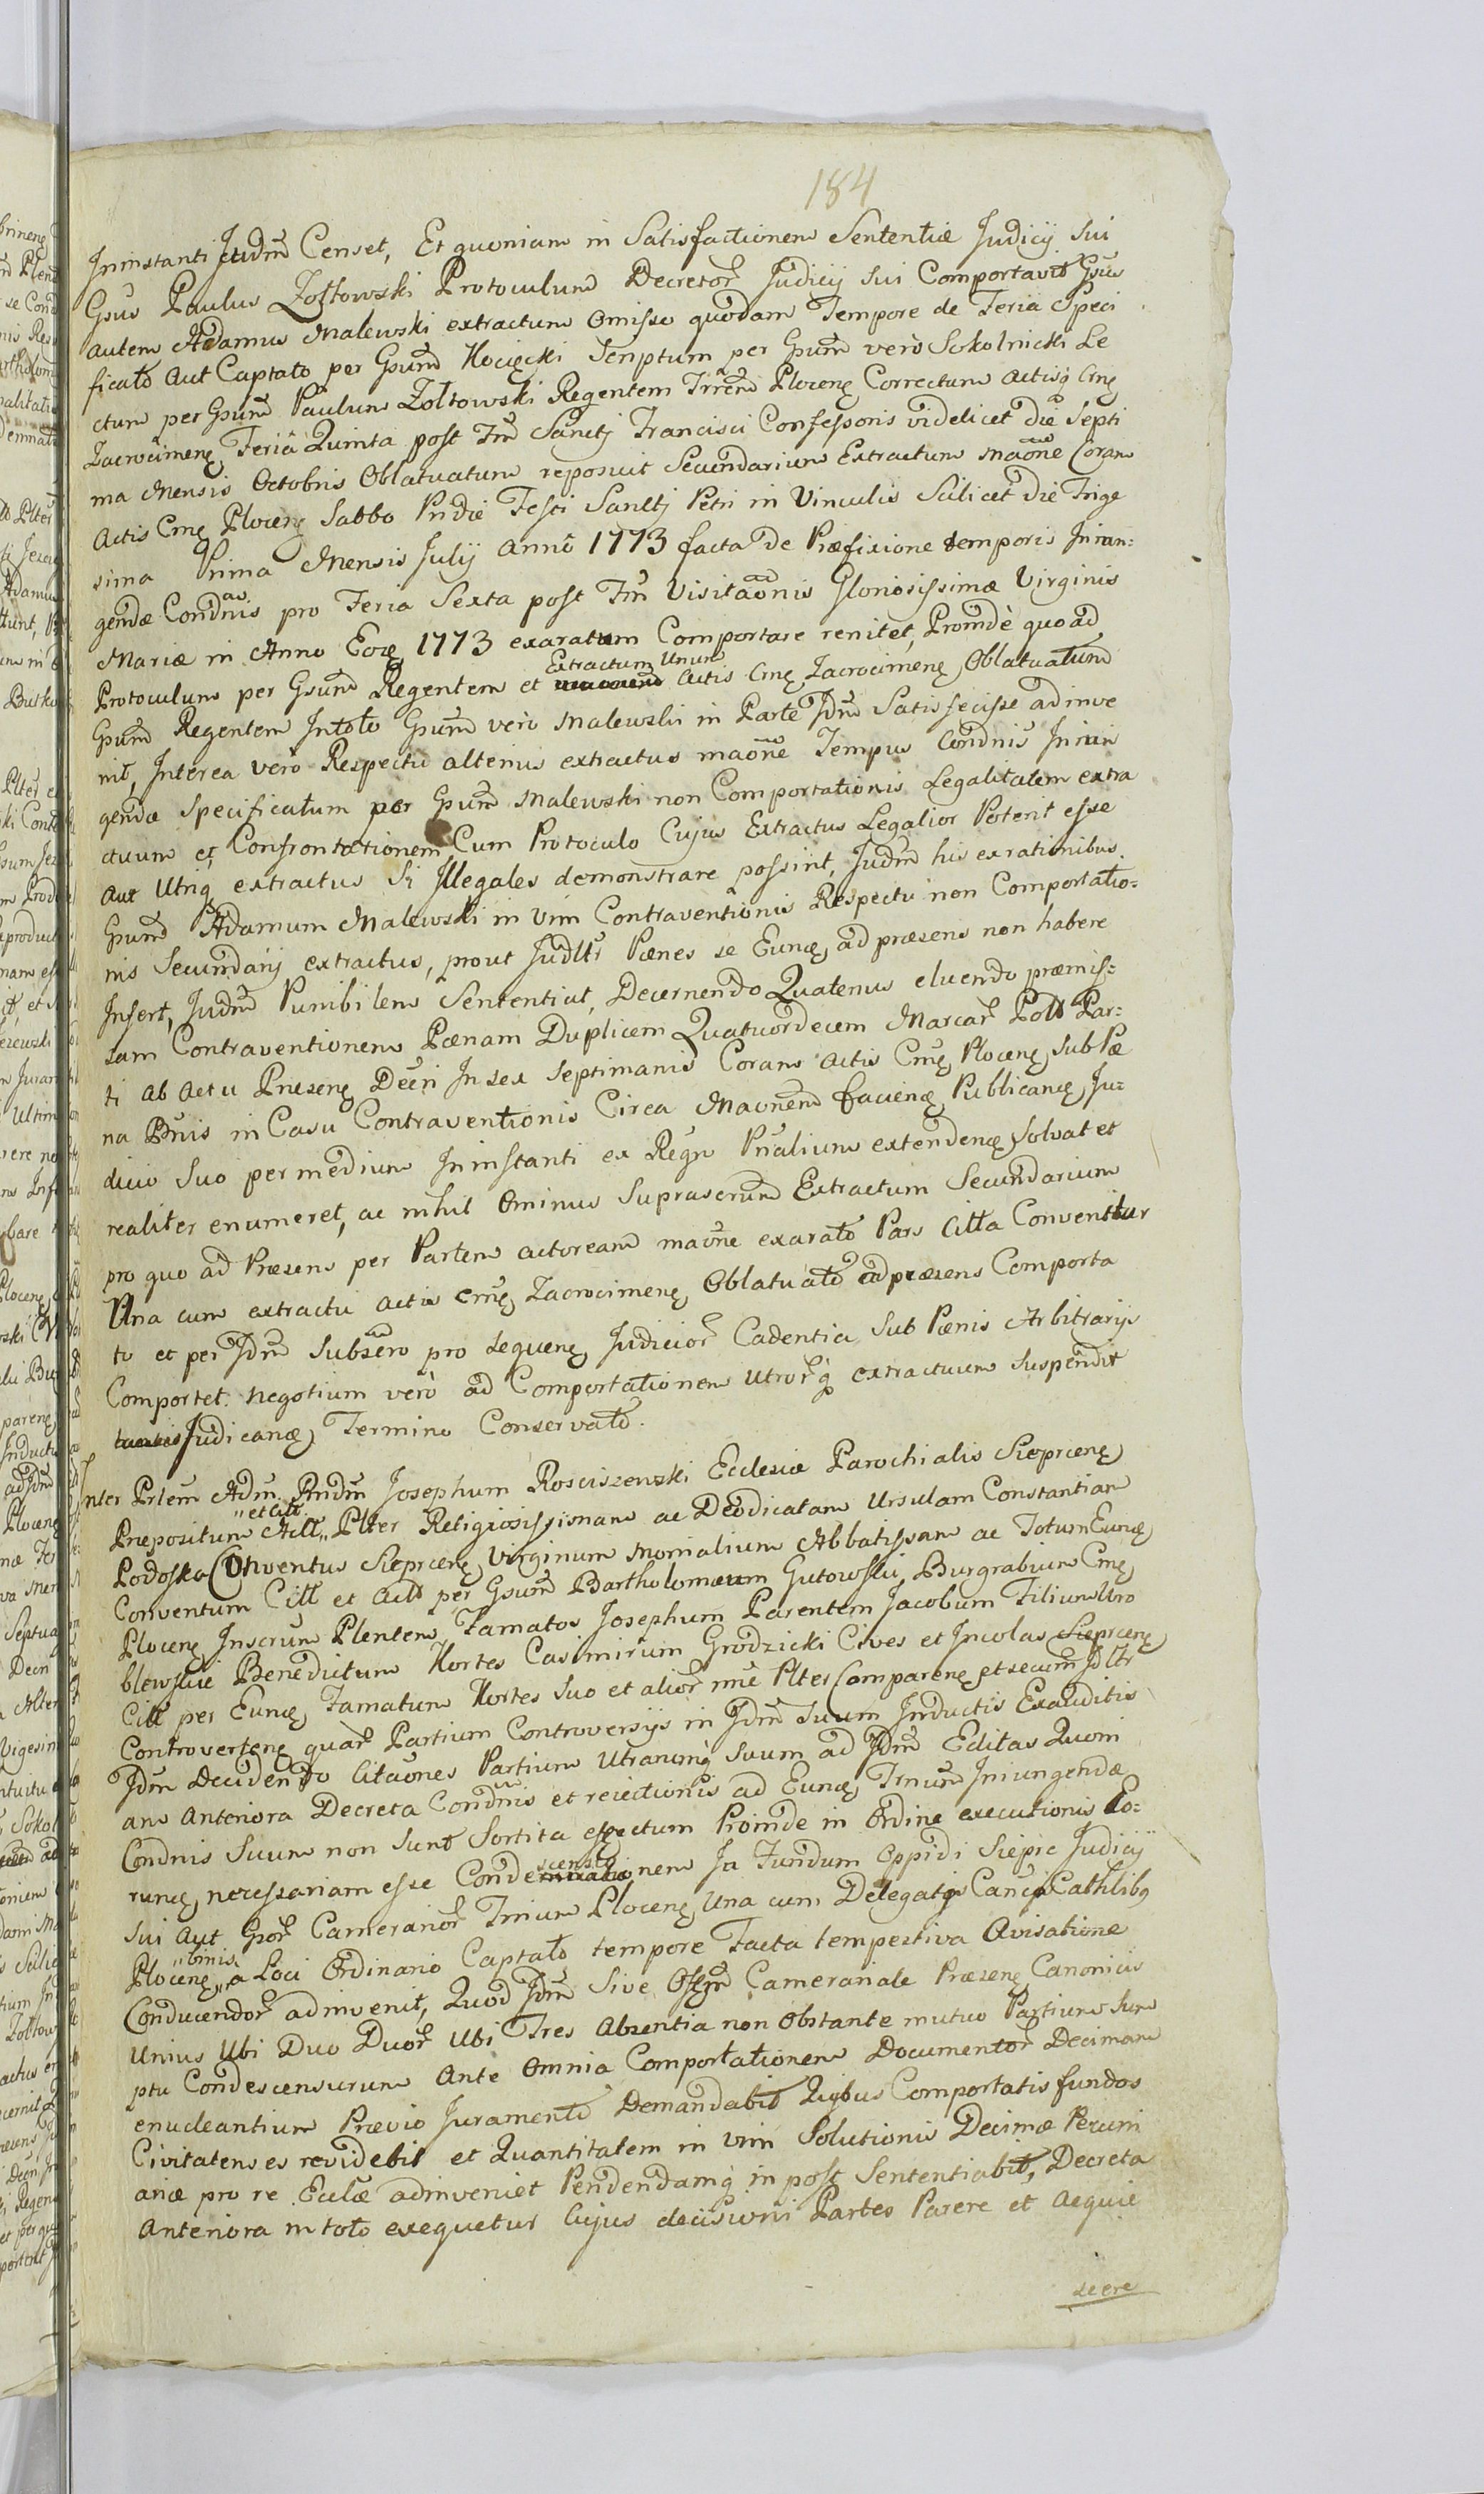 184
Ininstanti Judm Censet, Et quoniam in Satisfactionem Sententiæ Judicij Sui
Gsus Paulus Zołtowski Protoculum Decretor Judicij Sui Comportavit Gsus
autem Adamus Malewski extractum omisso quodam Tempore de Feria Speci
ficato aut Captato per Gsum Kocięcki Scriptum per Gsum verò Sokolnicki Le
ctum per Gsum Paulum Zołtowski Regentem Trrem Plocenę Correctum actisq Crnę
Zacrocimenę Feria Quinta post Fm Sanctj Francisci Confessoris videlicet die Septi
ma Mensis Octobris Oblatuatum reposuit Secundarium Extractum maõne Coram
Actis Cmę Plocenę Sabbo Pridie Festi Sanctj Petri in Vinculis Scilicet die Trige
sima Prima Mensis Julij Anno 1773 facta de Præfixione temporis Iniun:
gendæ Condnis pro Feria Sexta post Fm Visitaõnis Gloriosissimæ Virginis
Mariæ in Anno Eoę 1773 exaratum Comportare renitet, Proindè quo ad
Protoculum per Gsum Regentem et Extractum Unum actis Cmę Zacrocimenę Oblatuatum
Gsum Regentem Intoto Gsum verò Malewski in Parte Jdm Satisfecisse adinve
nit, Interea verò Respectu alterius extractus maõne Tempus Condnis Iniun
gendæ Specificatum per Gsum Malewski non Comportationis Legalitatem extra
ctuum et Confrontationem Cum Protoculo Cujus Extractus Legalior Poterit esse
Aut Utriq extractus Si Illegales demonstrare possint, Judm his ex rationibus
Gsum Adamum Malewski in vim Contraventionis Respectu non Comportatio:
nis Secundarij extractus, prout Judltr Pænes se Eunę ad præsens non habere
Insert, Judm Punibilem Sententiat, Decernendo Quatenus eluendo præmis:
sam Contraventionem Pænam Duplicem Quatuordecem Marcar Poll Par:
ti ab actu Præsenę Decri In sex Septimanis Coram Actis Cmę Plocenę Sub Pæ
na Bnis in Casu Contraventionis Circa Maõnem facienę Publicanę Ju:
dicio Suo per medium Ininstanti ex Regro Pnalium extendenę Solvat et
realiter enumeret, ac nihil Ominus Suprascrum Extractum Secundarium
pro quo ad Præsens per Partem actoream maõne exarato Pars Citta Convenitur
Una cum extractu actis Cmę Zacrocimenę Oblatuato ad præsens Comporta
to et per Jdm Subscro pro sequenę Judicior Cadentia Sub Pænis Arbitrarijs
Comportet. negotium verò ad Comportationem Utror q extractuum Suspendit
Judicanę Termino Conservato.
Inter Prlem Adm Rndm Josephum Rosciszewski Ecclesiæ Parochialis Sieprcenę
Præpositum Actt et Citt Plter Religiosissimam ac Deodicatam Ursulam Constantiam
Podoska Conventus Sieprcenę Virginum Monialium Abbatissam ac Totum Eunę
Conventum Citt et Actt per Gsum Bartholomæum Gutowski, Burgrabium Cmę
Plocenę Inscrum Plentem, Famatos Josephum Parentem Jacobum Filium Wro
blewskie Benedictum Kortes Casimirum Grodzicki Cives et Incolas Sieprcenę
Citt per Eunę Famatum Kortes Suo et alior nne Plter Comparenę et secum Jdltr
Controvertenę quar Partium Controversijs in Jdm Suum Inductis Exauditis
Jdm Decidendo Citaõnes Partium Utrarumq Suum ad Jdm Editas Quoni
am Anteriora Decreta Condnis et reiectionis ad Eunę Trnum Iniungendæ
Condnis Suum non Sunt Sortita effectum Proinde in Ordine executionis Eo:
runę necessariam esse Condescensionem In Fundum Oppidi Sierpc Judicij
Sui Aut Gsor Camerarior Trrium Plocenę Una cum Delegatis Cancis Cathlibq
Plocenę binis a Loci Ordinario Captato tempore Facta tempestiva Avisatione
Conducendor adinvenit, Quod Jdm Sive Offm Camerariale Præsenę Canonicis
Unius Ubi Duo Duor Ubi Tres Absentia non Obstante mutuo Partium Sum
ptu Condescensurum Ante Omnia Comportationem Documentor Decimam
enucleantium Prævio Juramento Demandabit Quibus Comportatis fundos
Civitatenses revidebit et Quantitatem in vim Solutionis Decimæ Pecuni
ariæ pro re Ecclæ adinveniet Pendendamq in post Sententiabit, Decreta
Anteriora in toto exequetur Cujus decisioni Partes Parere et Aequie
scere